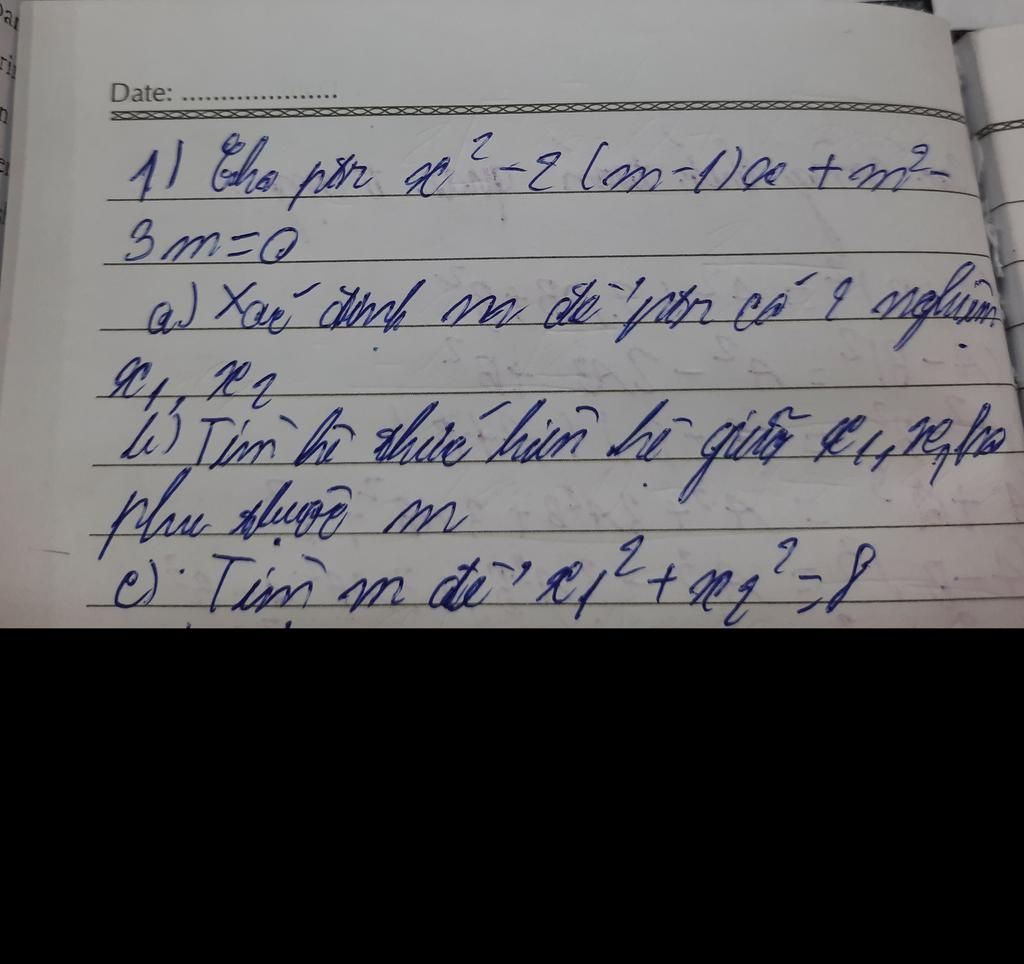 Date: ....................
1) Cho ptr x² - 2(m-1)x + m² -
3m = 0
a) Xác định m để ptr có 2 nghiệm
x₁, x₂
b) Tìm hệ thức liên hệ giữa x₁, x₂ ko
phụ thuộc m
c) Tìm m để x₁² + x₂² = 8